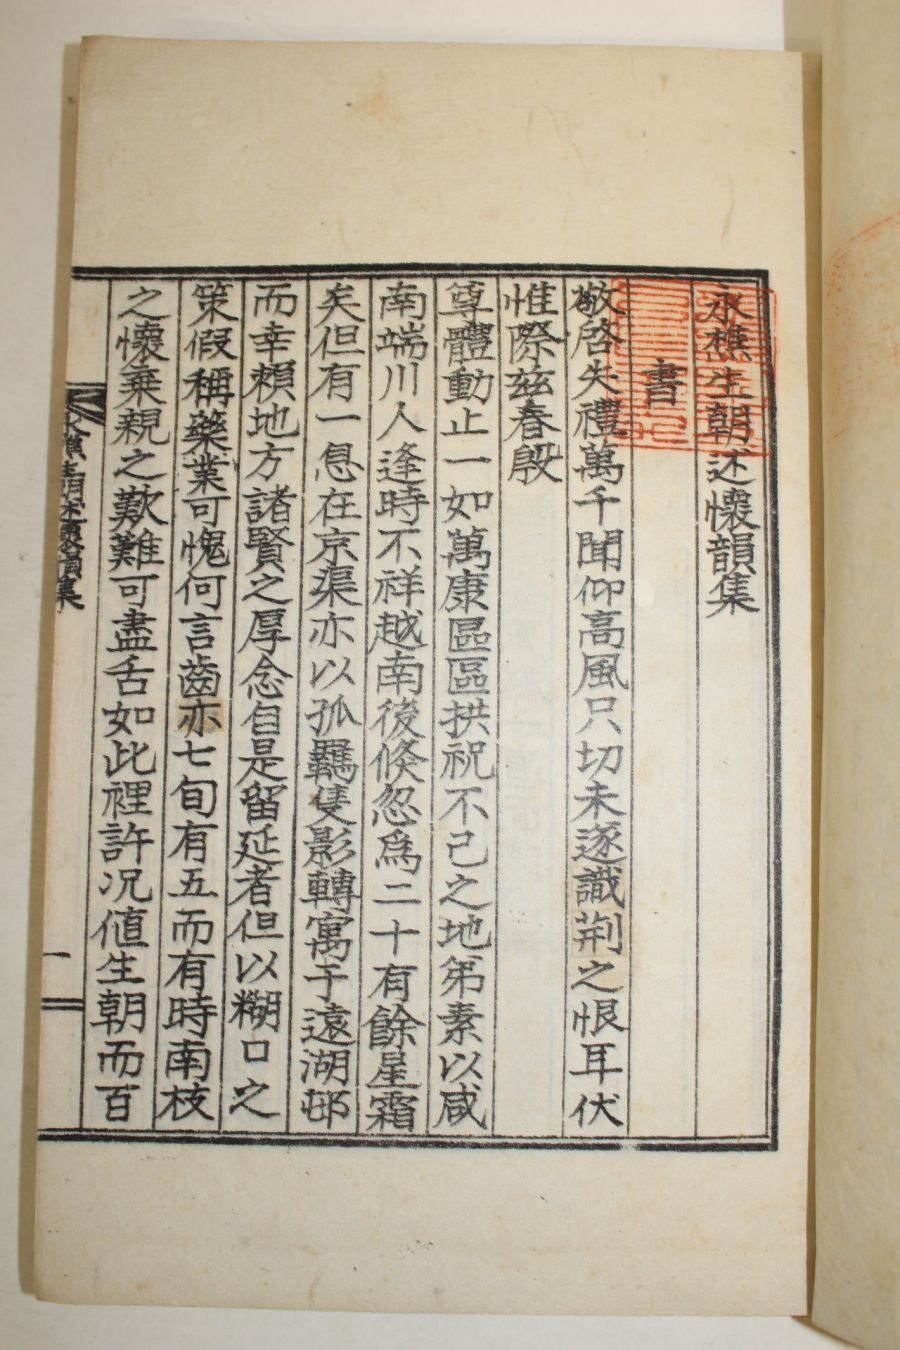 永樵生朝述懷韻集
書
敬啓失禮萬千聞仰高風只切未遂識荊之恨耳伏
惟際茲春殷
尊體動止一如萬康區區拱祝不己之地第素以咸
南端川人逢時不祥越南後倏忽爲二十有餘星霜
矣但有一息在京渠亦以孤羈隻影轉寓于遠湖邨
而幸頼地方諸賢之厚念自是留延者但以糊口之
策假稱藥業可愧何言齒亦七旬有五而有時南枝
之懷棄親之歎難可盡舌如此裡許况値生朝而百
永樵生朝述懷韻集
一